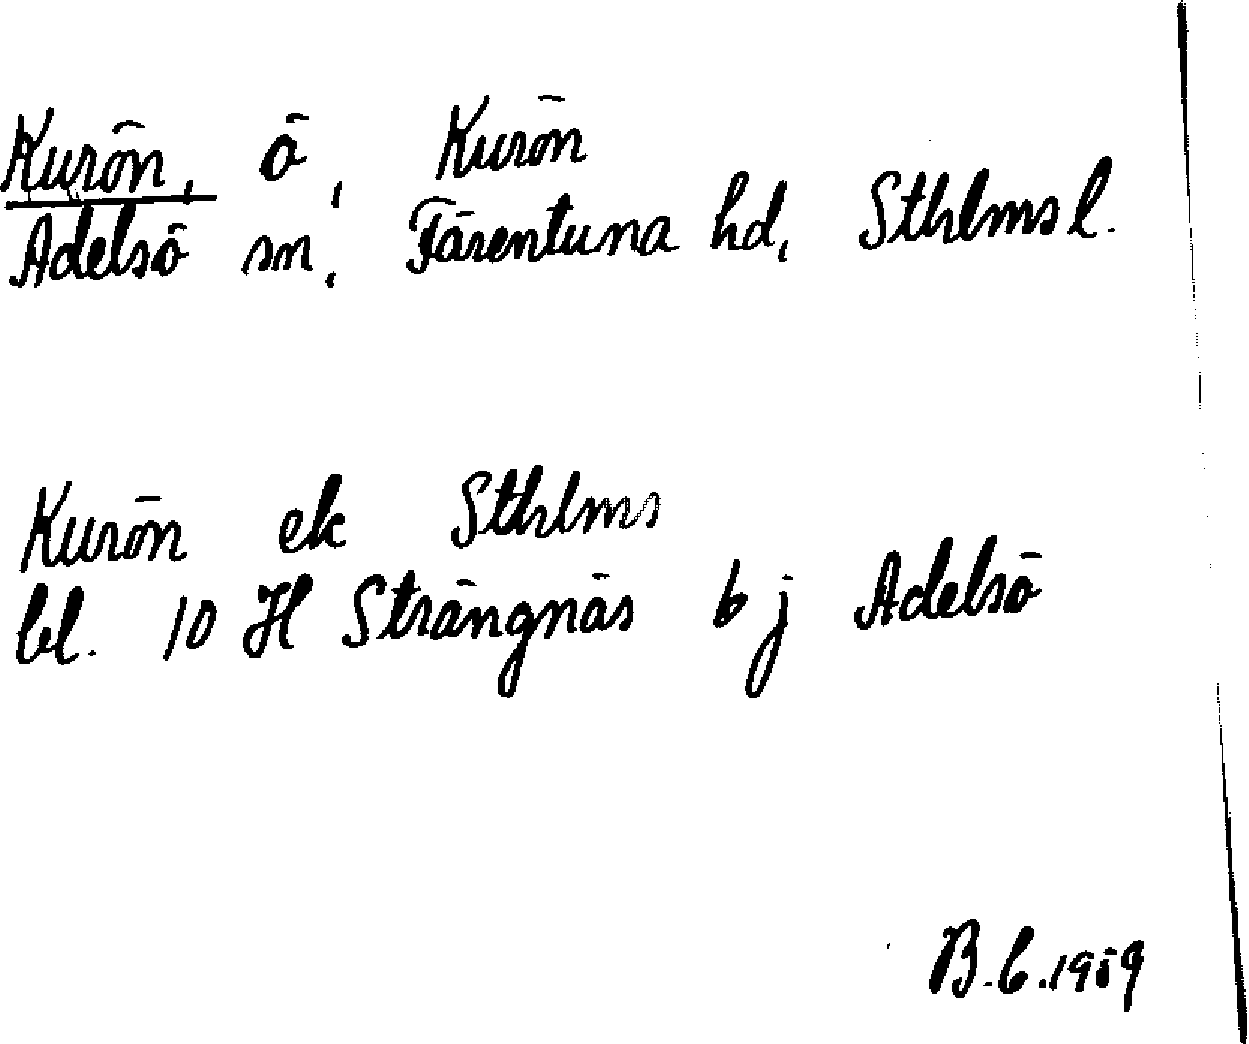 Kurön, ö, Kurön
Adelsö sn, Färentuna hd, Sthlms l.
Kurön ek Sthlms
bl. 10 H Strängnäs 6 j Adelsö
B.C. 1959